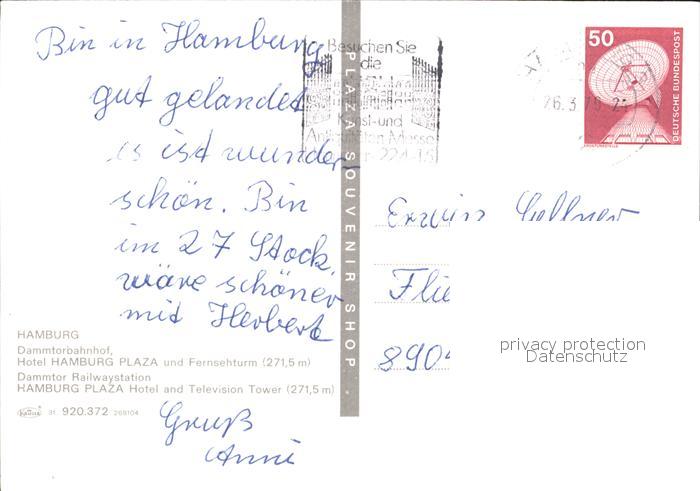 Bin in Hamburg
gut gelandet
es ist wunder-
schön. Bin
im 27 Stock.
wäre schöner
mit Herbert
Gruß
Anni
HAMBURG
Dammtorbahnhof,
Hotel HAMBURG PLAZA und Fernsehturm (271,5 m)
Dammtor Railwaystation
HAMBURG PLAZA Hotel and Television Tower (271,5 m)
31 920.372 268104
PLAZA SOUVENIR SHOP.
Besuchen Sie
die
Kunst-und
Antiquitäten-Messe
26.3.
50
DEUTSCHE BUNDESPOST
ERDFUNKSTELLE
Erwin
Flie
890
privacy protection
Datenschutz